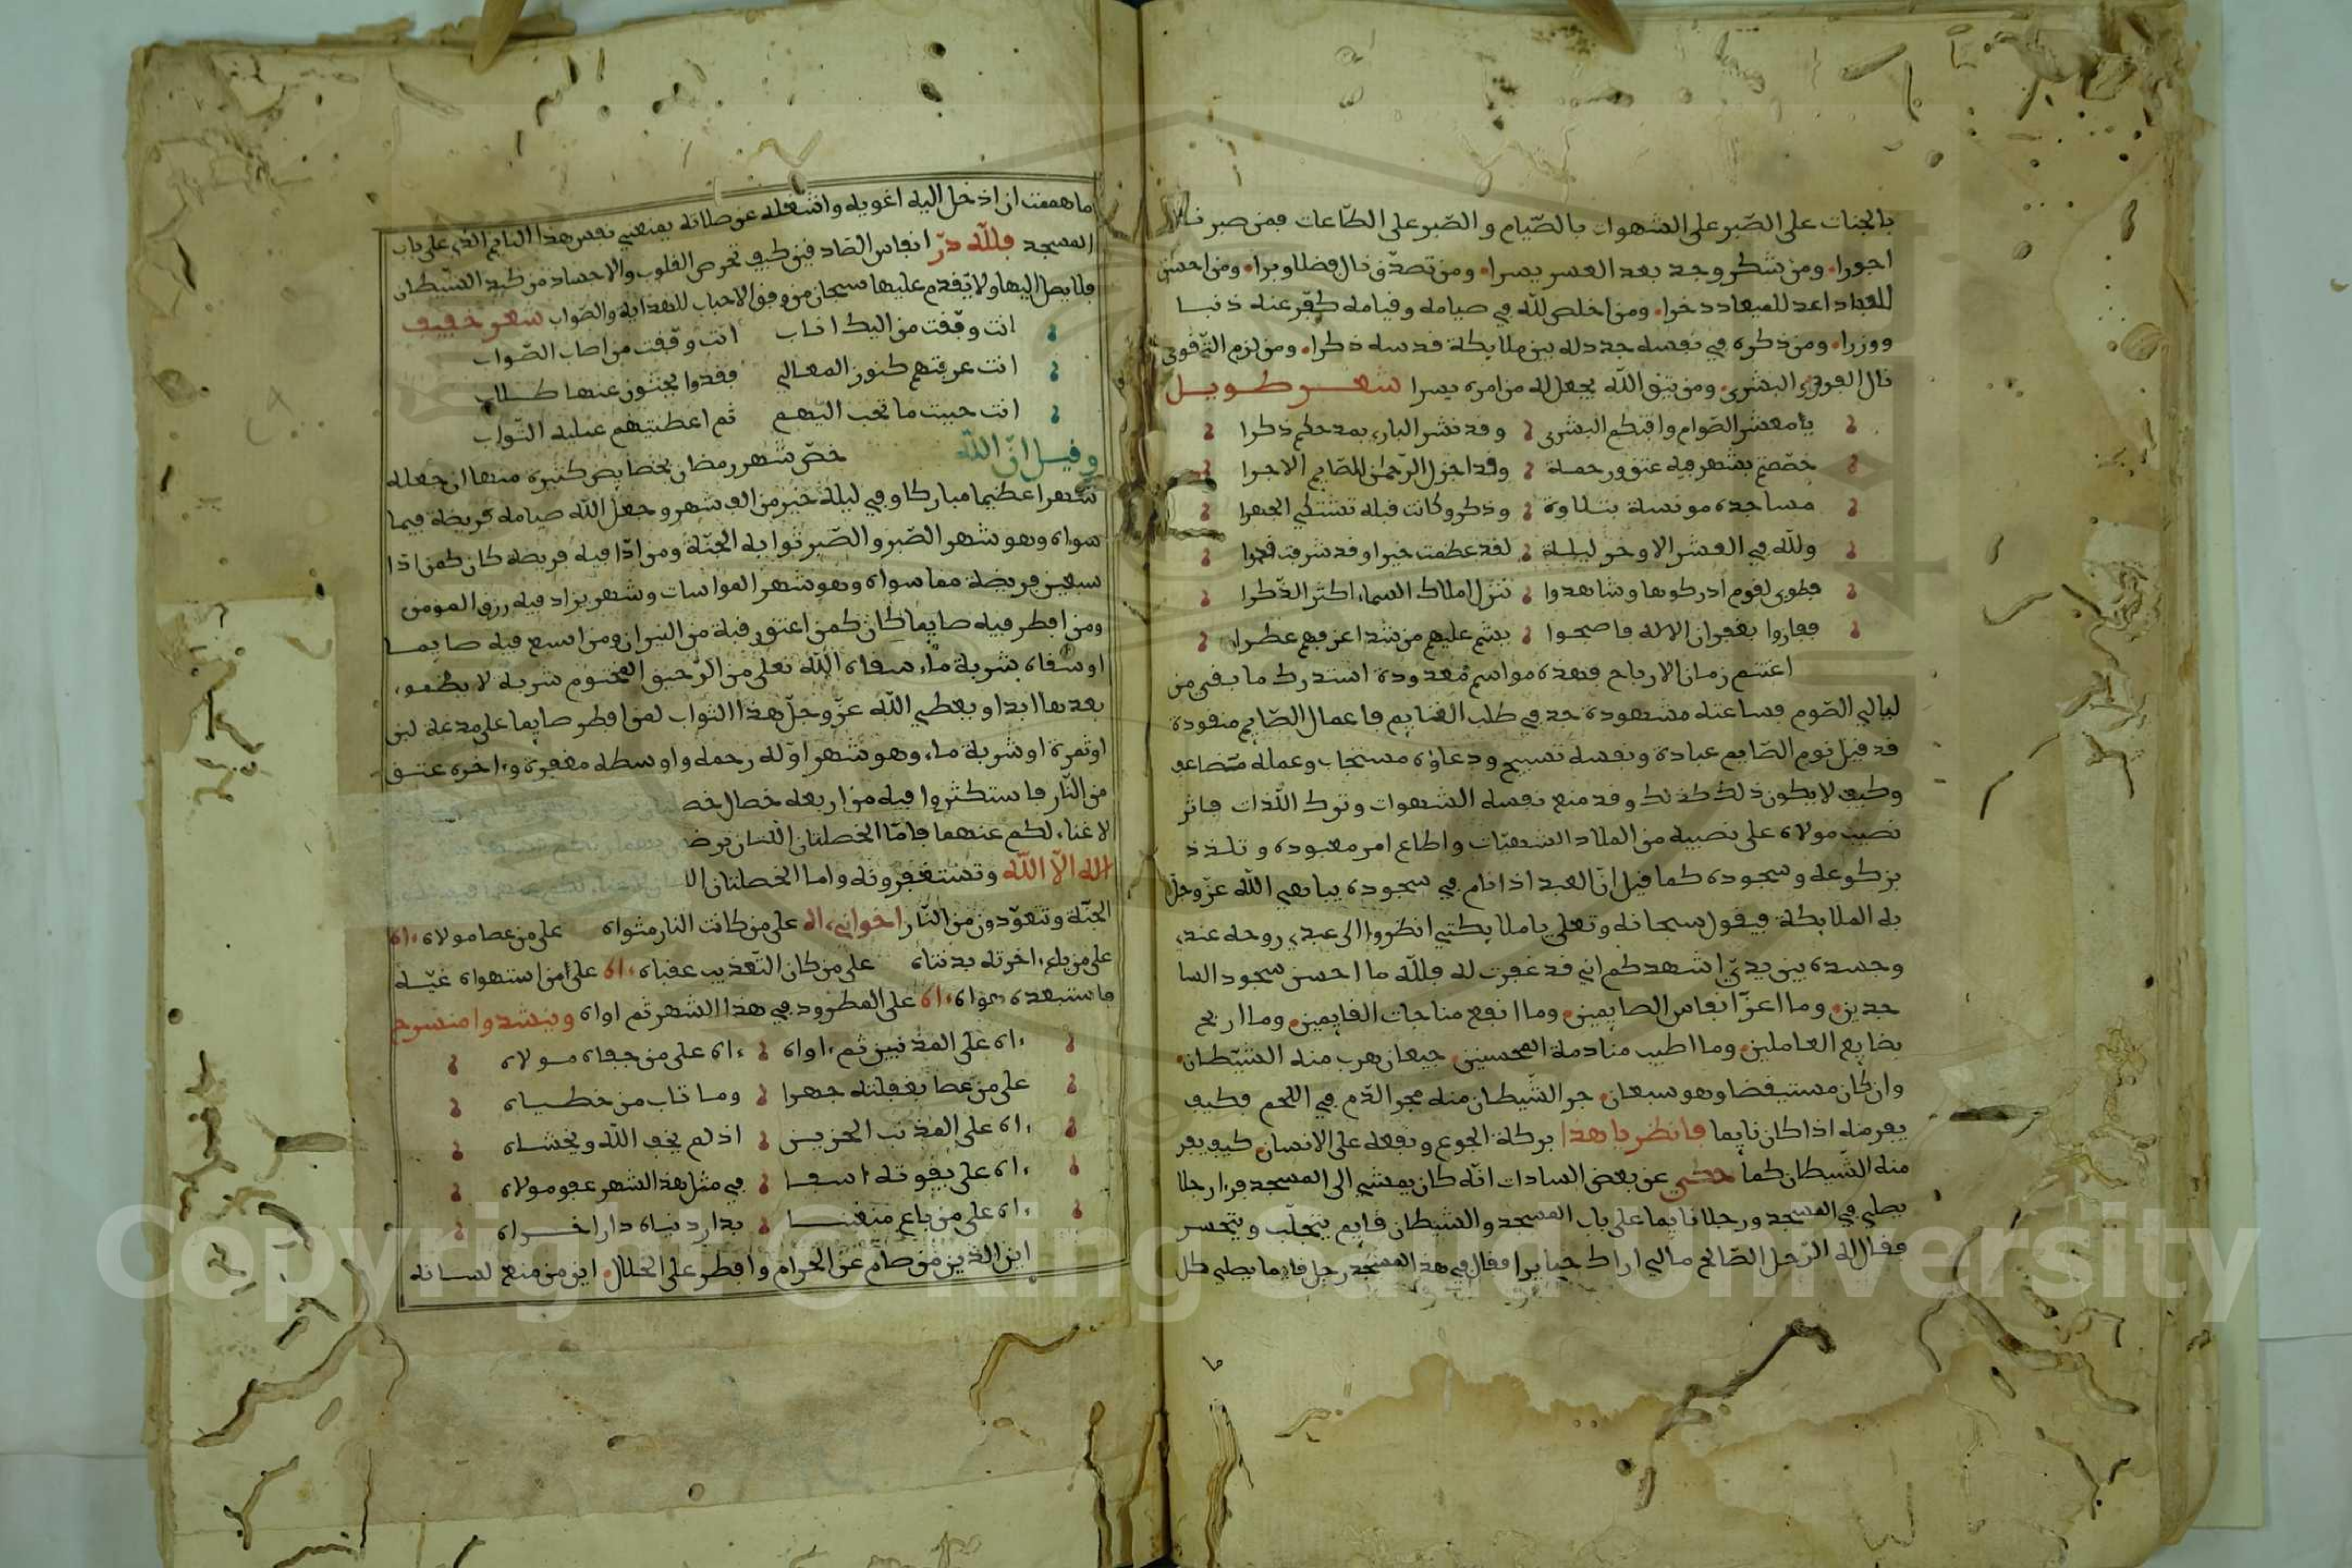 بالجنات على الصّبر على الشهوات بالصّيام والصّبر على الطّاعات فمن صبر نال
اجورا ومن شكر وجد بعد العسر يسرا ومن تصدّق نال فضلا وبرا ومن احسن
للعباد اعد للميعاد دخرا ومن اخلص لله في صيامه وقيامه كفّر عنه ذنبا
ووزرا ومن ذكره في نفسه جدد له بين ملايكة قدسه ذكرا ومن لزم التّقوى
نال الفوز البشرى ومن يتق الله يجعل له من امره يسرا شعر طويل
يا معشر الصّوام وافتكم البشرى وقد نشر الباري بمدحكم ذكرا
خصّصتم بشهر فيه عتق ورحمة وقد اجزل الرّحمن للصّايم الاجرا
مساجده مونسة بتلاوة وذكر وكانت قبله تشتكي الهجرا
ولله في العشر الاوخر ليلة لقد عظمت خيرا وقد شرفت قدرا
فطوبى لقوم ادركوها وشاهدوا تنزل املاك السماء اكثر الذّكرا
ففازوا بغفران الاله فاصبحوا يشم عليهم من شذا عرفهم عطرا
اغتنم زمان الارباح فهذه مواسم معدودة استدرك ما بقي من
ليالي الصّوم فساعته مشهودة جد في طلب الغنايم فاعمال الصّايم منقودة
قد قيل نوم الصّايم عبادة ونفسه تسبيح ودعاؤه مستجاب وعمله متضاعف
وكيف لا يكون ذلك كذلك وقد منع نفسه الشهوات وترك اللّذات فاثر
نصيب مولاه على نصيبه من الملاد الشهيّات واطاع امر معبوده وتلذذ
بركوعه وسجوده كما قيل انّ العبد اذا نام في سجوده يباهي الله عزّ وجلّ
به الملايكة فيقول سبحانه وتعلى يا ملايكتي انظروا الى عبدي روحه عندي
وجسده بين يديّ اشهدكم اني قد غفرت له فللّه ما احسن سجود السا
جدين وما اعزّ انفاس الصايمين وما انفع مناجات القايمين وما اربح
بضايع العاملين وما اطيب منادمة المحسنين جيعان هرب منه الشيّطان
وان كان مستيقضا وهو سبعان جر الشّيطان منه مجر الدّم في اللّحم فكيف
يفر منه اذا كان نايما فانظر يا هذا بركة الجوع ونفعه على الانسان كيف يفر
منه الشّيطان كما حكي عن بعض السادات انّه كان يمشي الى المسجد فرا رجلا
يصلي في المسجد ورجلا نايما على باب المسجد والشيطان قايم يتحلّب ويتحسر
فقال له الرّجل الصّالح مالي اراك حيا يرا فقال في هذا المسجد رجل قايما يصلي كل
ما هممت ان ادخل اليه اغويه واشغله عن صلاته يمنعني نفس هذا النايم الذي على باب
المسجد فللّه درّ انفاس الصّادقين كيف تحرص القلوب والاجساد من كيد الشّيطان
فلا يصل اليها ولا يتقدم عليها سبحان من وفق الاحباب للهداية والصّواب شعر خفيف
انت وفّقت من اليك اناب انت وفّقت من اصاب الصّواب
انت عرفتهم كنوز المعالي فغدوا يجتنون عنها طلاب
انت حببت ما تحب اليهم ثم اعطيتهم عليه الثّواب
وقيل انّ الله خصّ شهر رمضان بخصايص كثيرة منها ان جعله
شهرا عظيما مباركا وفي ليلة خير من الف شهر وجعل الله صيامه فريضة فيما
سواه وهو شهر الصّبر والصّبر ثوابه الجنّة ومن ادّا فيه فريضة كان كمن ادّا
سبعين فريضة مما سواه وهو شهر المواسات وشهر يزاد فيه رزق المومن
ومن افطر فيه صايما كان كمن اعتق رقبة من النيران ومن اسبع فيه صايما
او سقاه بشربة ماء سقاه الله تعلى من الرّحيق المختوم شربة لا يظموء
بعدها ابدا ويعطي الله عزّ وجلّ هذا الثواب لمن افطر صايما على مدعة لبن
او ثمرة او شربة ماء وهو شهر اوّله رحمه واوسطه مغفرة واخره عتق
من النّار فاستكثروا فيه من اربعه خصال خص
لا غناء لكم عنهما فامّا الخصلتان اللتان ترض
اله الّا الله وتستغفرونه واما الخصلتان ال
الجنّة وتتعوّدون من النّار اخواني اه على من كانت النار مثواه على من عصا مولاه اه
على من باع اخرته بدنياه على من كان التّعذيب عقباه اه على من استهواه غيّه
فاستبعده هواه اه على المطرود في هذا الشهر ثم اواه وينشدوا منسرح
اه على المذنبين ثم اواه اه على من جفاه مولاه
على من عصا بغفلته جهرا وما تاب من خطياه
اه على المذنب الحزين اذ لم يخف الله ويخشاه
اه على يفوته اسفا في مثل هذا الشهر عفو مولاه
اه على من باع منغبنا بدار دنياه دار اخراه
اين الذين من صام عن الحرام وافطر على الحلال اين من منع لسانه